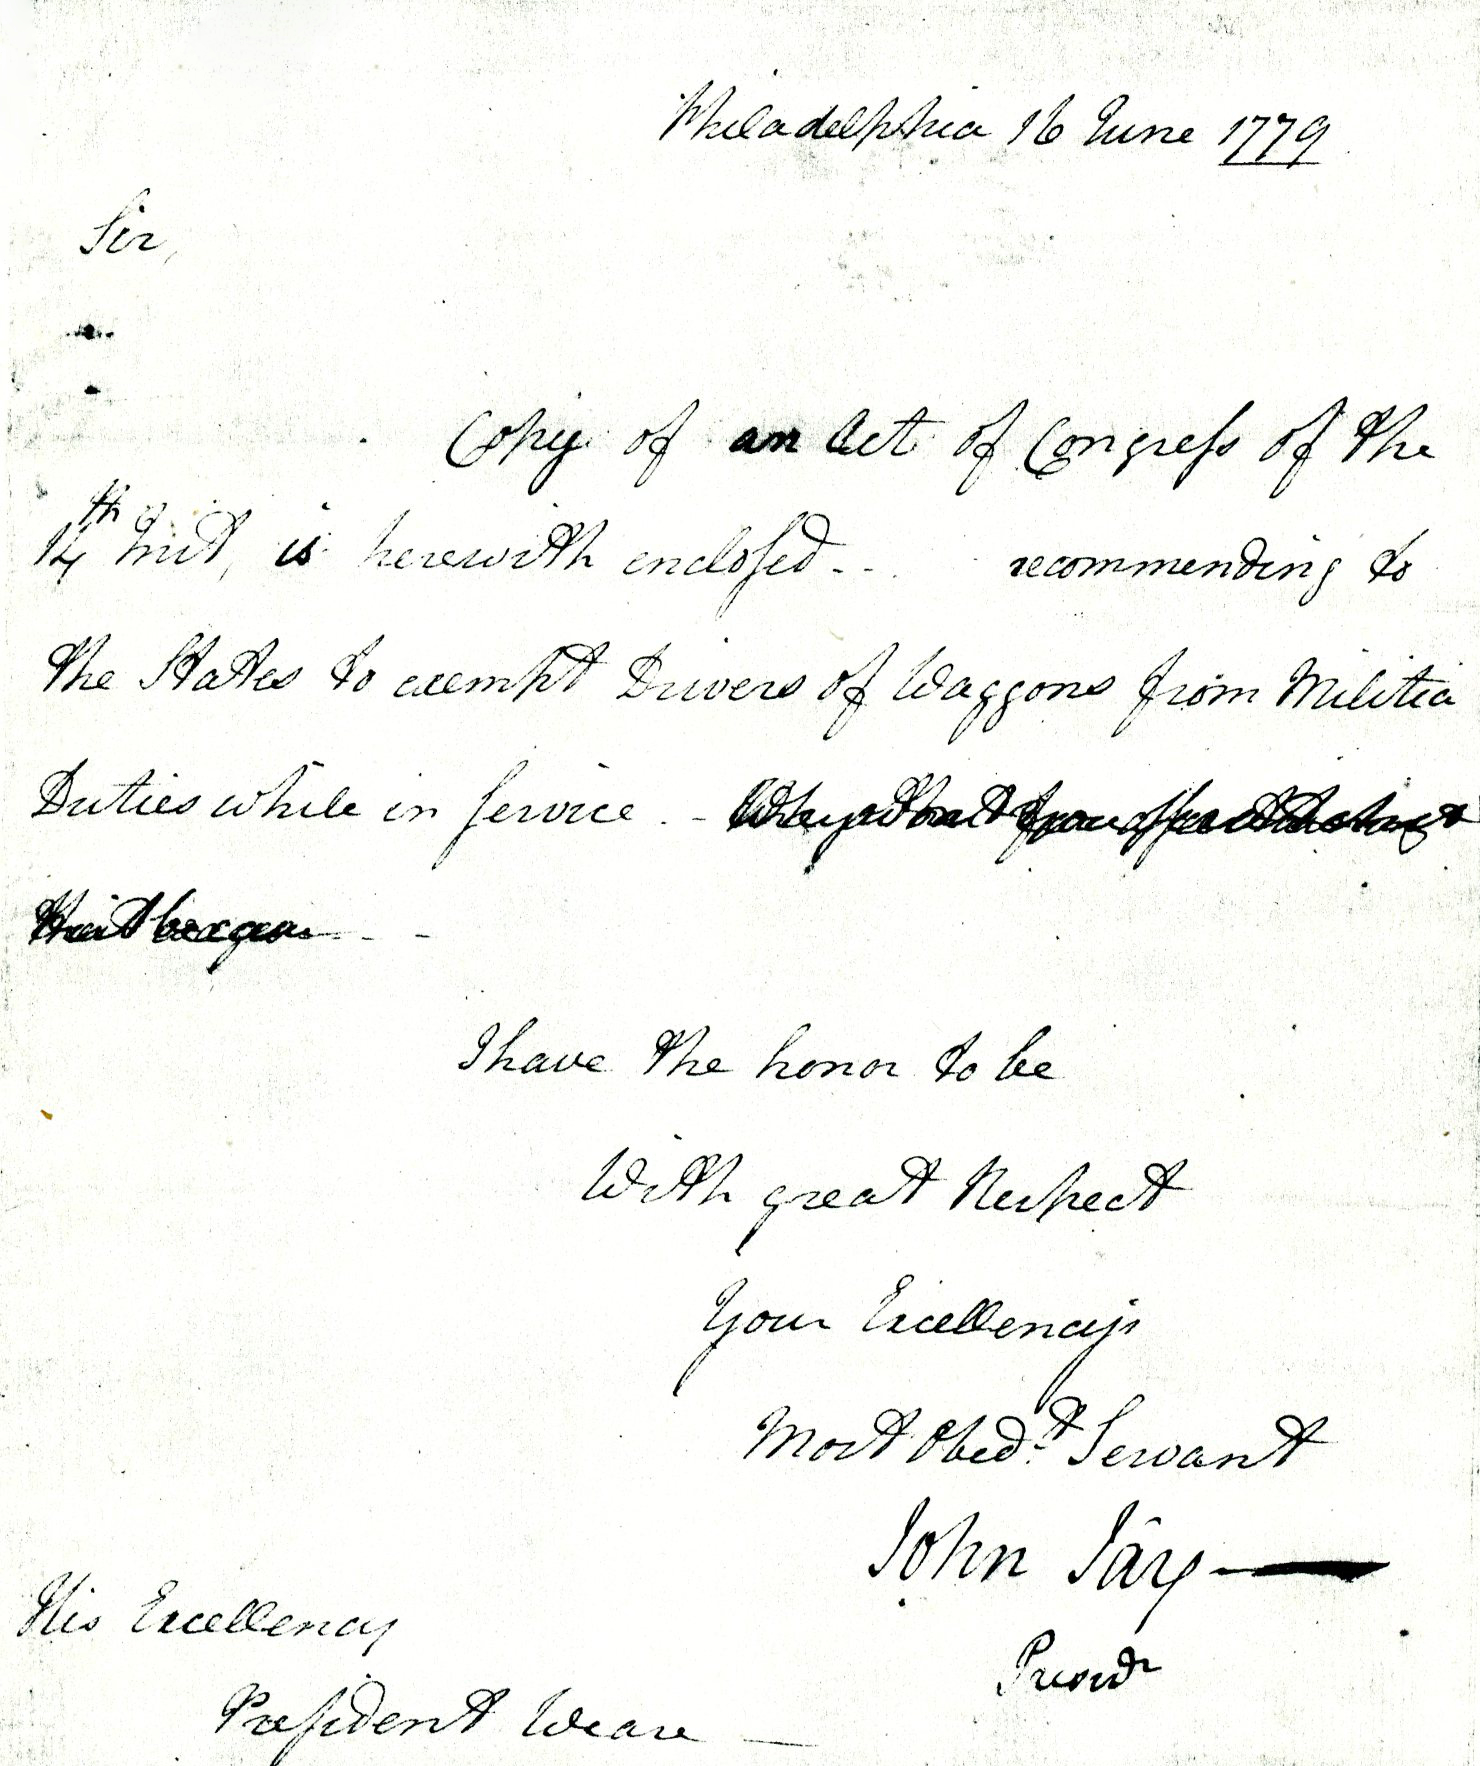 Philadelphia 16 June 1779
Sir,
Copy of an Act of Congress of the
14th Inst, is herewith enclosed - - recommending to
the States to exempt Drivers of Waggons from Militia
Duties while in Service . -
I have the honor to be
With great Respect
Your Excellencys
Most Obedt Servant
John Jay
Presidt
His Excellency
President Weare